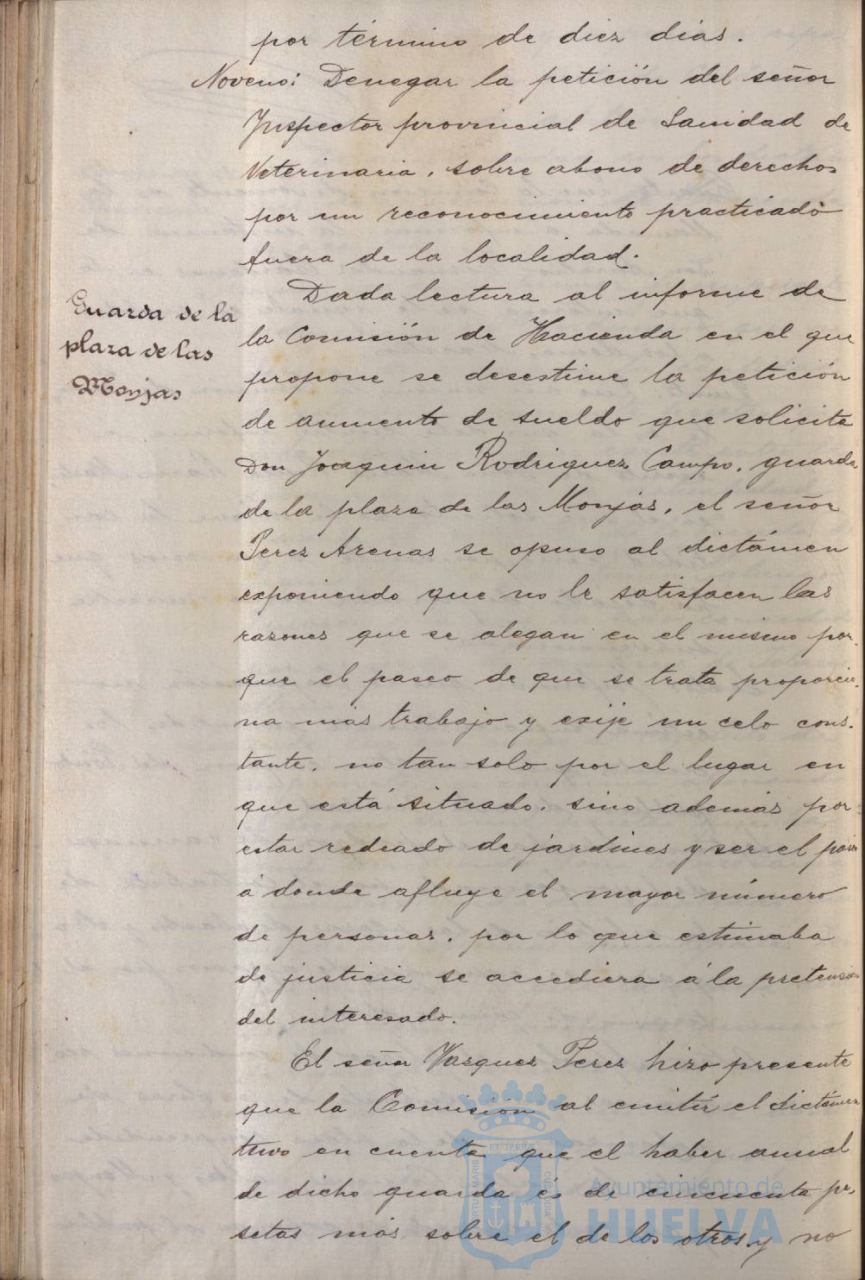 por término de diez días.
Noveno: Denegar la petición del señor
Inspector provincial de Sanidad de
Veterinaria, sobre abono de derechos
por un reconocimiento practicado
fuera de la localidad.
Guarda de la
plaza de las
Monjas
Dada lectura al informe de
la Comisión de Hacienda en el que
propone se desestime la petición
de aumento de sueldo que solicita
Don Joaquin Rodriguez Campo, guarda
de la plaza de las Monjas, el señor
Perez Arenas se opuso al dictámen
exponiendo que no le satisfacen las
razones que se alegan en el mismo por-
que el paseo de que se trata proporcio-
na más trabajo y exije un celo cons-
tante, no tan solo por el lugar en
que está situado, sino además por
estar rodeado de jardines y ser el paseo
á donde afluye el mayor número
de personas, por lo que estimaba
de justicia se accediera á la pretensión
del interesado.
El señor Vazquez Perez hizo presente
que la Comisión al emitir el dictámen
tuvo en cuenta que el haber anual
de dicho guarda es de cincuenta pe-
setas más sobre el de los otros y no
Ayuntamiento de
HUELVA